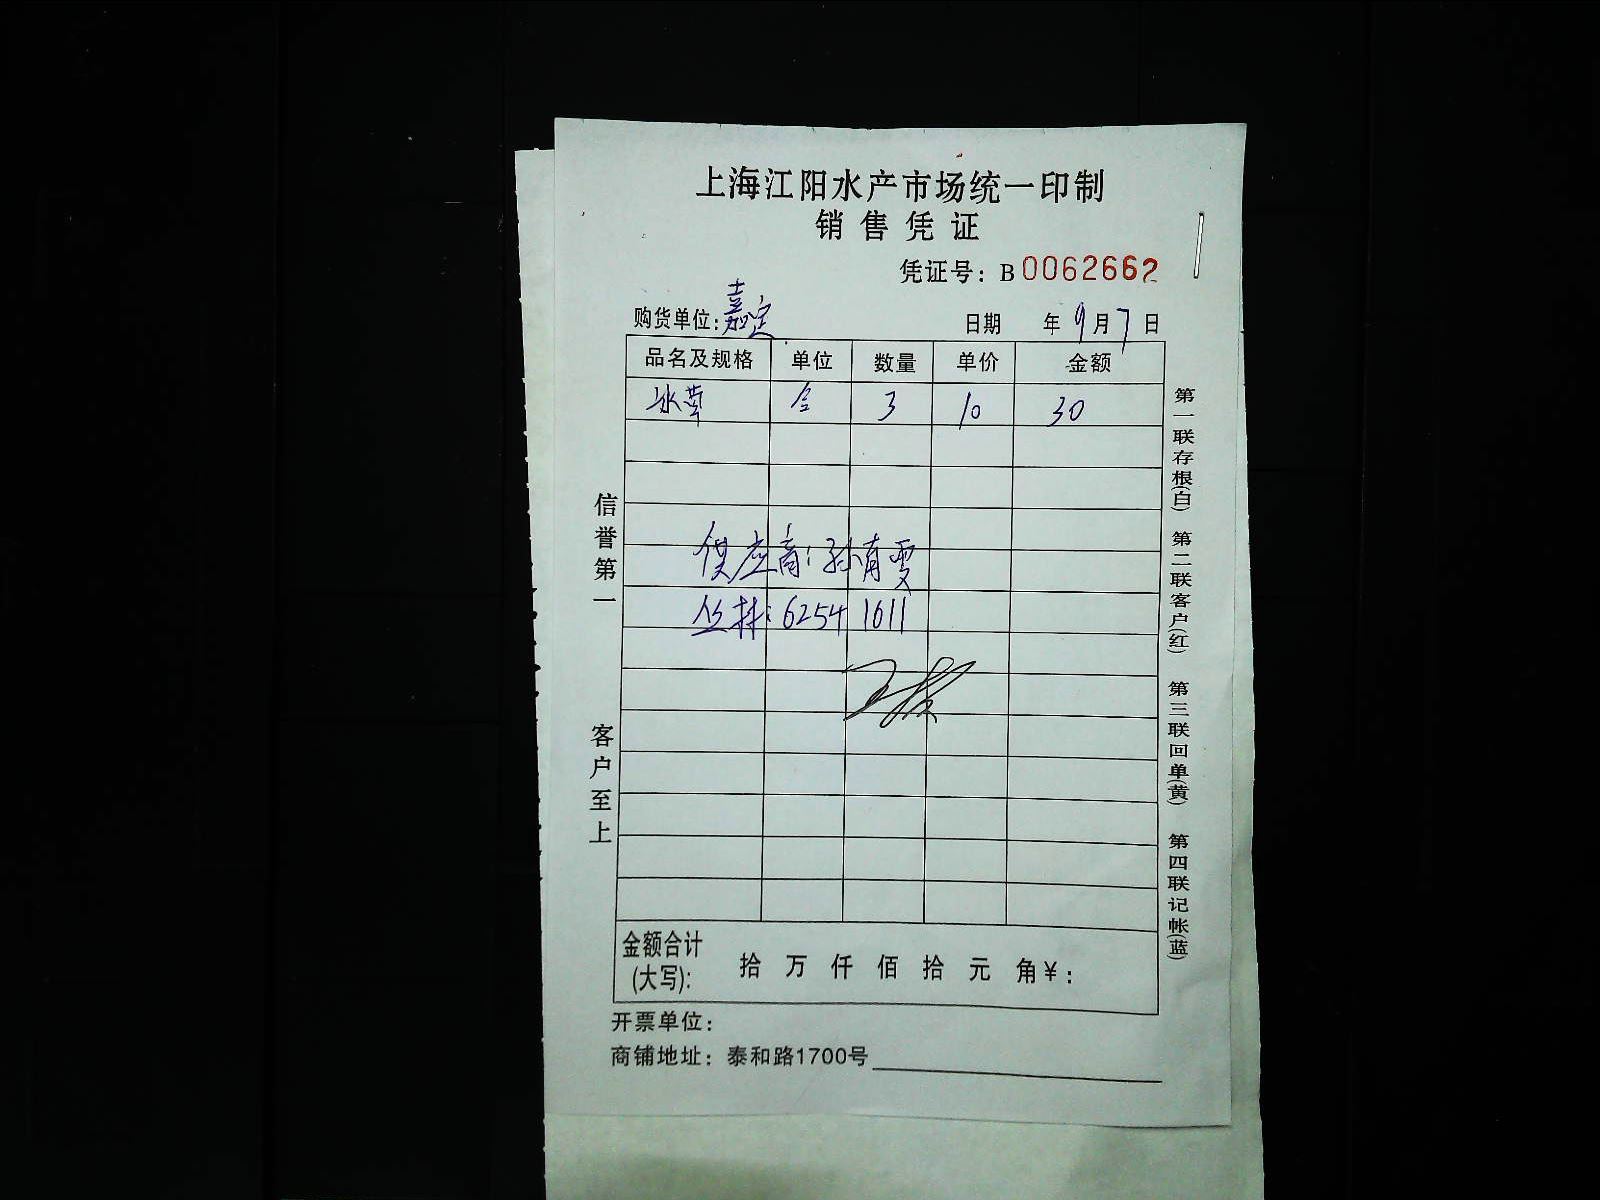 上海江阳水产市场统一印制
销售凭证
凭证号：B0062662
购货单位：嘉定
日期 年 9月 7日
品名及规格 单位 数量 单价 金额
冰草 合 3 10 30
供应商：孙有雯
丛林：6254 1611
信誉第一 客户至上
第一联存根(白) 第二联客户(红) 第三联回单(黄) 第四联记帐(蓝)
金额合计
(大写)： 拾 万 仟 佰 拾 元 角¥：
开票单位：
商铺地址：泰和路1700号